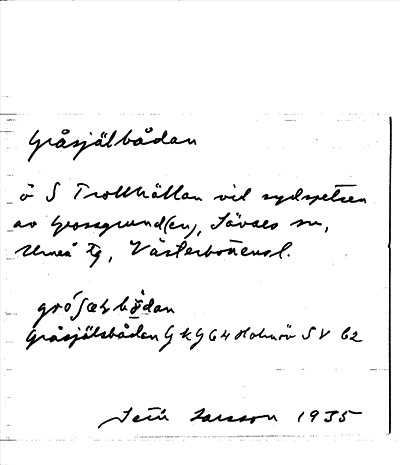 Gråsjälbådan
ö S Trollhällan vid sydspetsen
av Grossgrund(en), Sävars sn,
Umeå tg, Västerbottensl.
gråsjälsbådan G k G 64 Holmön SV 62
Larsson 1935